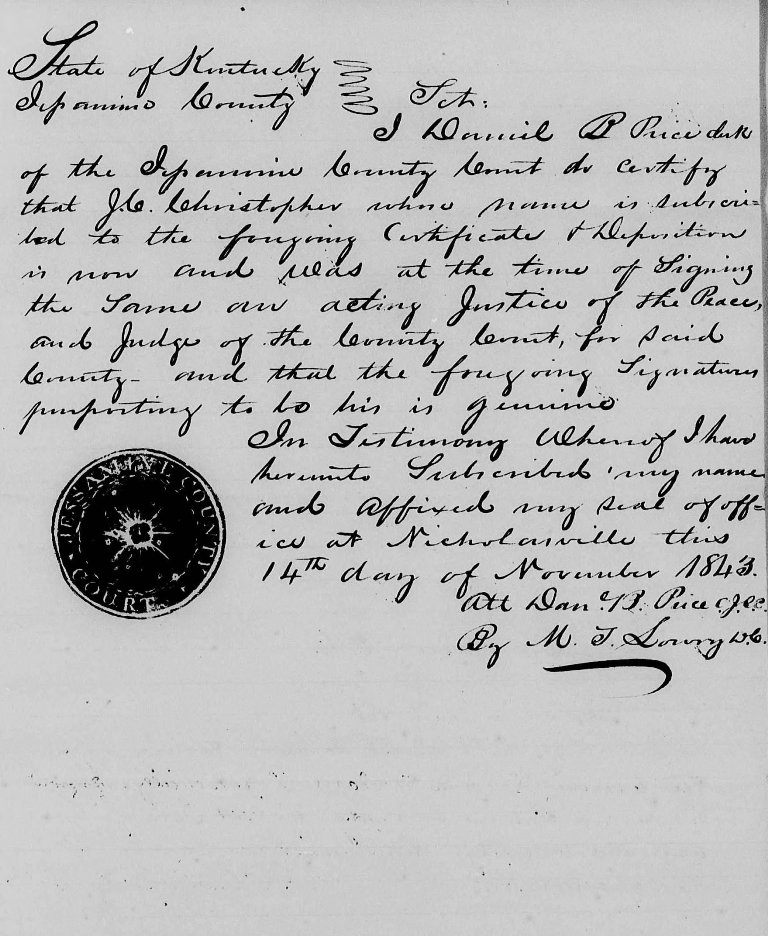 State of Kentucky
Jessamine County Sct:
I Daniel B Price clerk
of the Jessamine County Court do certify
that J.C. Christopher whose name is subscri=
bed to the foregoing Certificate & Deposition
is now and was at the time of Signing
the Same an acting Justice of the Peace,
and Judge of the County Court, for said
County - and that the foregoing Signatures
purporting to be his is genuine
In Testimony Whereof I have
hereunto Subscribed my name
and affixed my seal of off=
ice at Nicholasville this
14th day of November 1843.
Att Danl B. Price c.J.c.c.
By M. T. Lowry D.C.
JESSAMINE COUNTY
COURT